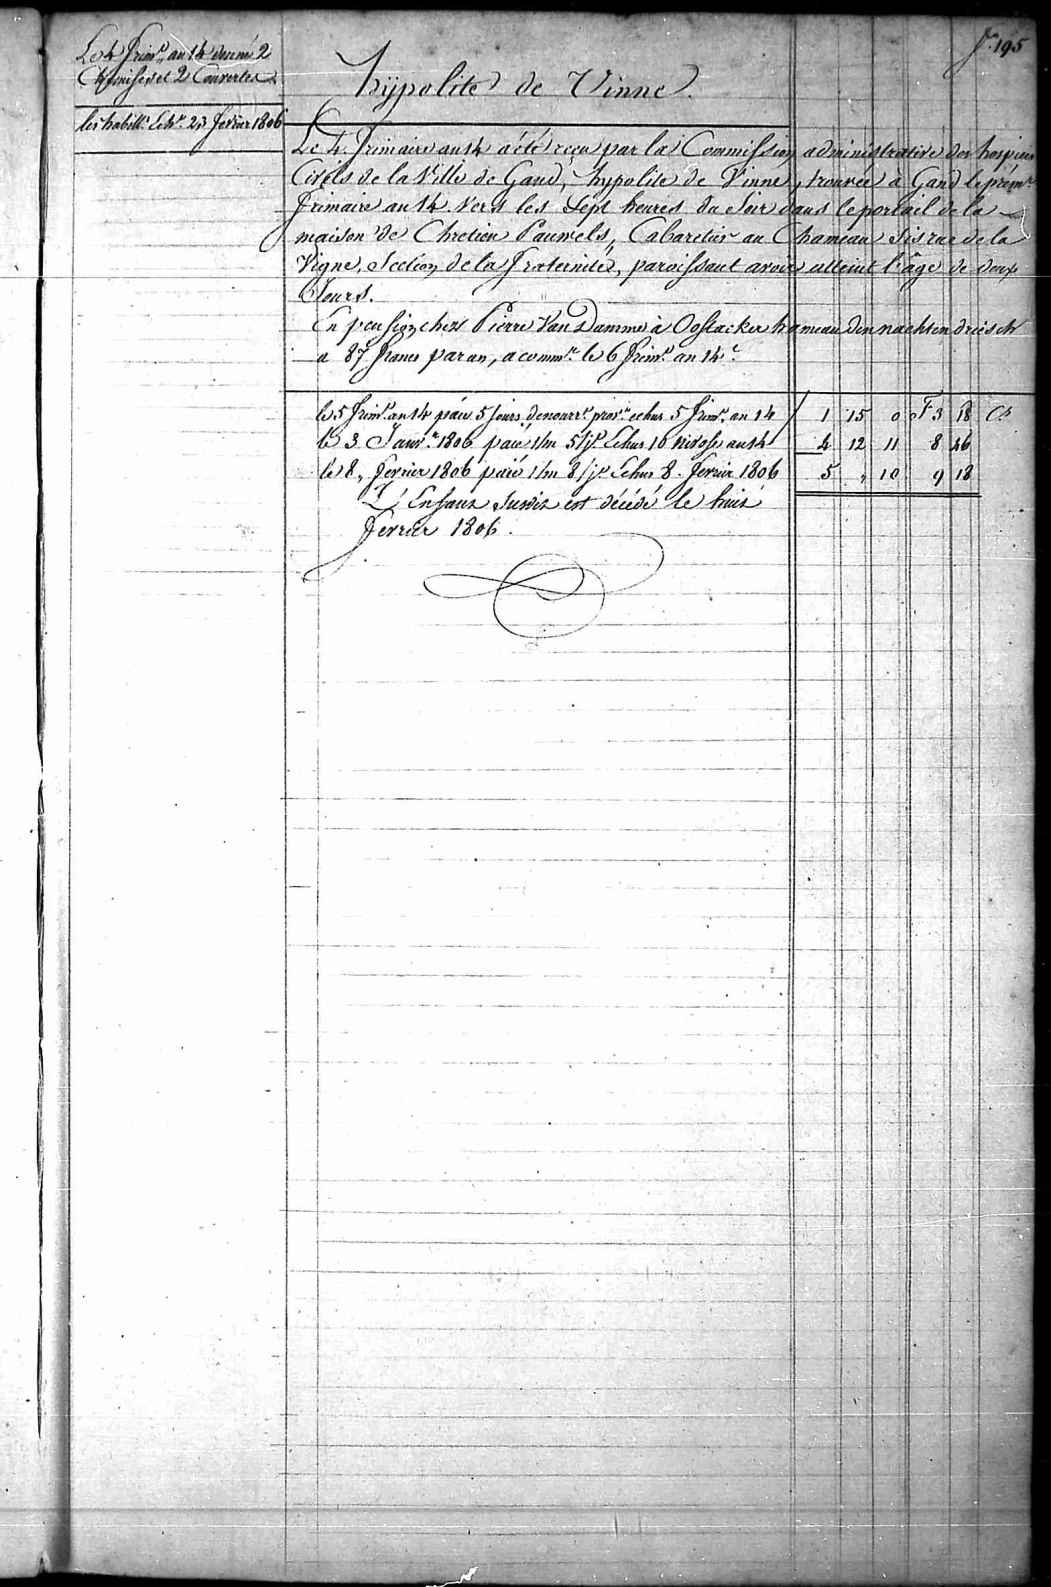 f° 195
Le 4 frim.e an 14 donné 2
Chemises et 2 Couvertes
les habill.s Echu. 23 fevrier 1806
hÿpolite de Vinne.
Le 4. frimaire an 14 a été reçu par la Commission administrative des hospices
Civils de la Ville de Gand, hypolite de Vinne, trouvée à Gand le prém.r
frimaire an 14 vers les Sept heures du Soir dans le portail de la
maison de Chretien Pauwels, Cabaretier au Chameau Sis rue de la
Vigne, Section de la fraternité, paroissant avoir atteint l'âge de deux
Jours.
En pension chez Pierre Van Damme à Oostacker hameau den nachten driesch
a 87 francs par an, a comm.r le 6 frim.e an 14.e
le 5 frim.e an 14 páié 5 Jours de nourr.e prov.re echus 5 frim.e an 14 1 15 0 F 3 18
le 3 Janv.r 1806 paié 1/m 5/j.s Echus 10 nivose an 14 4 12 11 8 46
le 18, fevrier 1806 paié 1/m 8/j.s Echus 8. fevrier 1806 5 " 10 9 18
L'Enfant Susdit est décédé le huit
fevrier 1806.